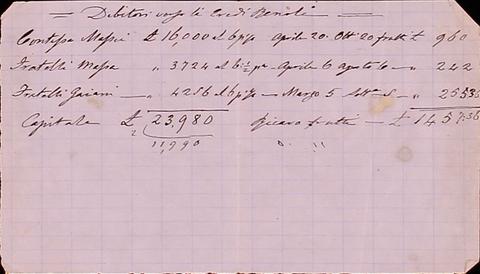 = Debitori verso li Eredi Benoli =
Contessa Massei £ 16,000 al 6 p% Aprile 20. Ott. 20 frutti £ 960
Fratelli Massa " 3724 al 6½ p% Aprile 6 agosto 6 — " 242
Fratelli Gaiani — " 4256 al 6 p% — Marzo 5 — " 255:36
Capitale £ 23,980 Ricavo frutti — £ 1457:36
2 11,990 " "